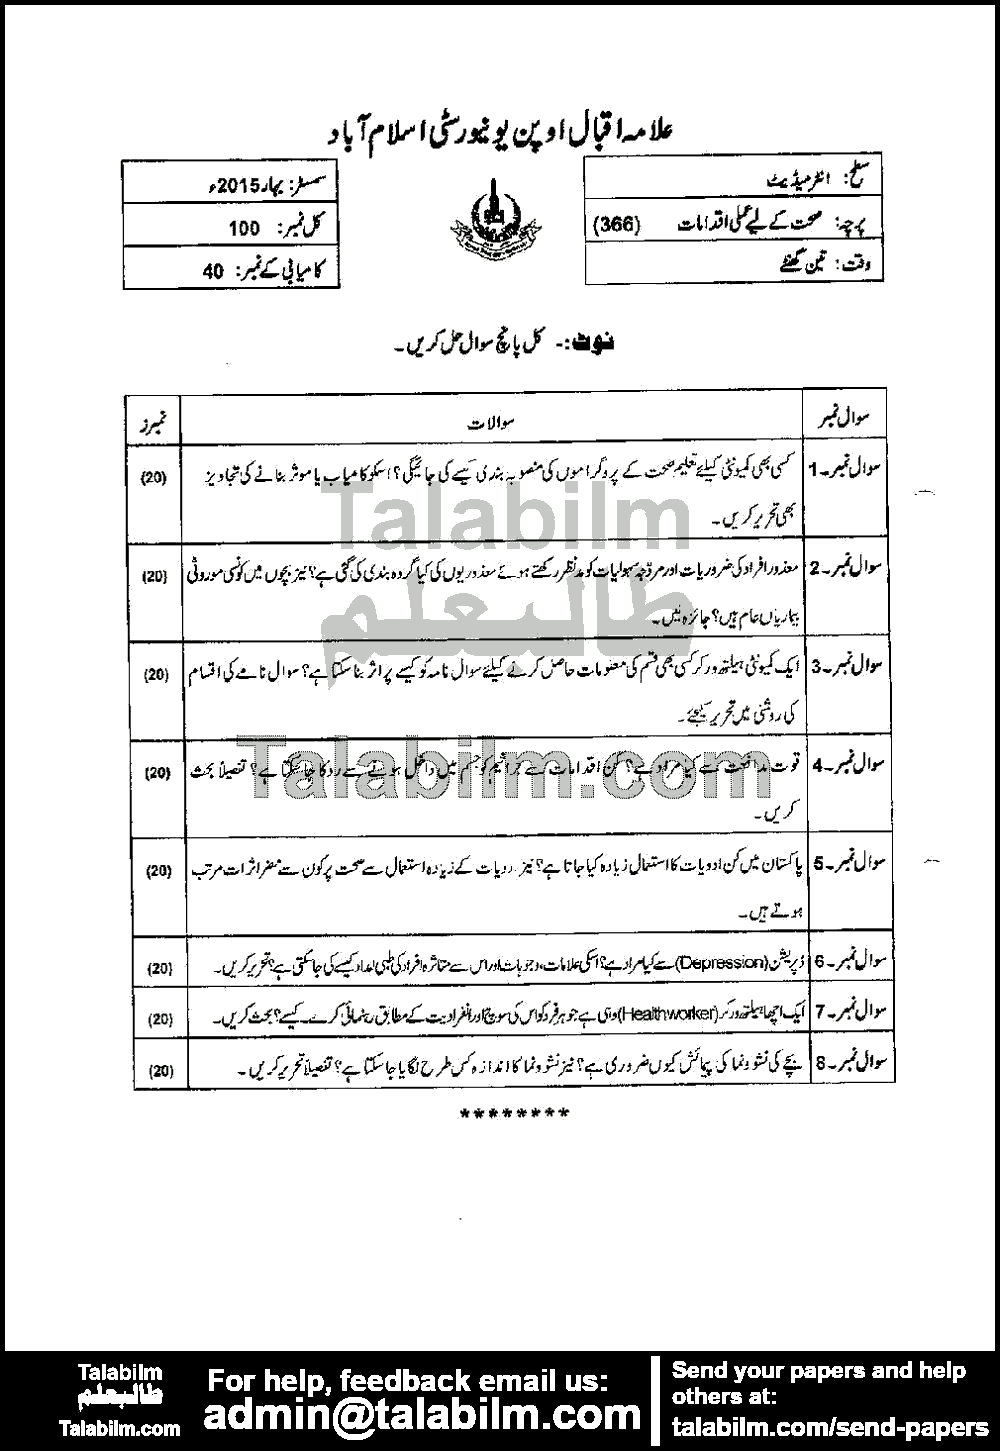 علامہ اقبال اوپن یونیورسٹی اسلام آباد
سطح: انٹرمیڈیٹ
پرچہ: صحت کے لیے عملی اقدامات (366)
وقت: تین گھنٹے
سمسٹر: بہار 2015ء
کل نمبر: 100
کامیابی کے نمبر: 40
نوٹ:- کل پانچ سوال حل کریں۔
سوال نمبر سوالات نمبرز
سوال نمبر۔1 کسی بھی کمیونٹی کیلئے تعلیم صحت کے پروگراموں کی منصوبہ بندی کیسے کی جائیگی؟ اسکو کامیاب یا موثر بنانے کی تجاویز (20)
بھی تحریر کریں۔
سوال نمبر۔2 معذور افراد کی ضروریات اور مروّجہ سہولیات کو مدنظر رکھتے ہوئے معذوریوں کی کیا گروہ بندی کی گئی ہے؟ نیز بچوں میں کونسی موروثی (20)
بیماریاں عام ہیں؟ جائزہ لیں۔
سوال نمبر۔3 ایک کمیونٹی ہیلتھ ورکر کسی بھی قسم کی معلومات حاصل کرنے کیلئے سوال نامہ کو کیسے پراثر بنا سکتا ہے؟ سوال نامے کی اقسام (20)
کی روشنی میں تحریر کیجئے۔
سوال نمبر۔4 قوت مدافعت سے کیا مراد ہے؟ کن اقدامات سے جراثیم کو جسم میں داخل ہونے سے روکا جا سکتا ہے؟ تفصیلاً بحث (20)
کریں۔
سوال نمبر۔5 پاکستان میں کن ادویات کا استعمال زیادہ کیا جاتا ہے؟ نیز ادویات کے زیادہ استعمال سے صحت پر کون سے مضر اثرات مرتب (20)
ہوتے ہیں۔
سوال نمبر۔6 ڈپریشن (Depression) سے کیا مراد ہے؟ اسکی علامات، وجوہات اور اس سے متاثرہ افراد کی طبی امداد کیسے کی جا سکتی ہے؟ تحریر کریں۔ (20)
سوال نمبر۔7 ایک اچھا ہیلتھ ورکر (Healthworker) وہی ہے جو ہر فرد کو اس کی سوچ اور انفرادیت کے مطابق رہنمائی کرے۔ کیسے؟ بحث کریں۔ (20)
سوال نمبر۔8 بچے کی نشوونما کی پیمائش کیوں ضروری ہے؟ نیز نشوونما کا اندازہ کس طرح لگایا جا سکتا ہے؟ تفصیلاً تحریر کریں۔ (20)
********
Talabilm
طالبعلم
Talabilm.com
Talabilm
طالبعلم
Talabilm.com
For help, feedback email us:
admin@talabilm.com
Send your papers and help
others at:
talabilm.com/send-papers